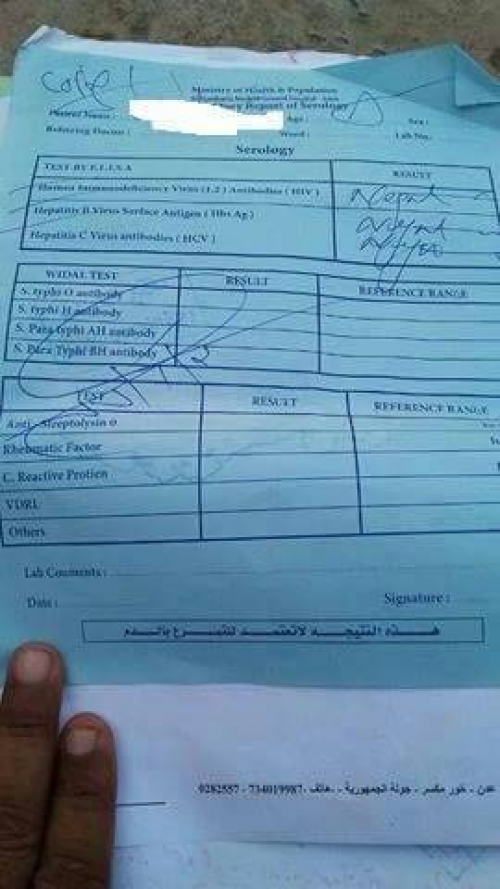 Ministry of Health & Population
Report of Serology
Patient Name :
Age :
Sex :
Refering Doctor :
Word :
Lab No.
Serology
TEST BY E.L.I.S.A RESULT
Human Immunodeficiency Virus (1,2) Antibodies ( HIV )
Hepatitis B Virus Serface Antigen ( Hbs Ag )
Hepatitis C Virus antibodies ( HCV )
WIDAL TEST RESULT REFERENCE RANGE
S. typhi O antibody
S. typhi H antibody
S. Para typhi AH antibody
S. Para Typhi BH antibody
TEST RESULT REFERENCE RANGE
Anti - Streptolysin o
Rheumatic Factor
C. Reactive Protien
VDRL
Others
Lab Comments :
Date : Signature :
هذه النتيجه لاتعتمد للتبرع بالدم
عدن - خور مكسر - جولة الجمهورية - هاتف : 734019987 - 0282557